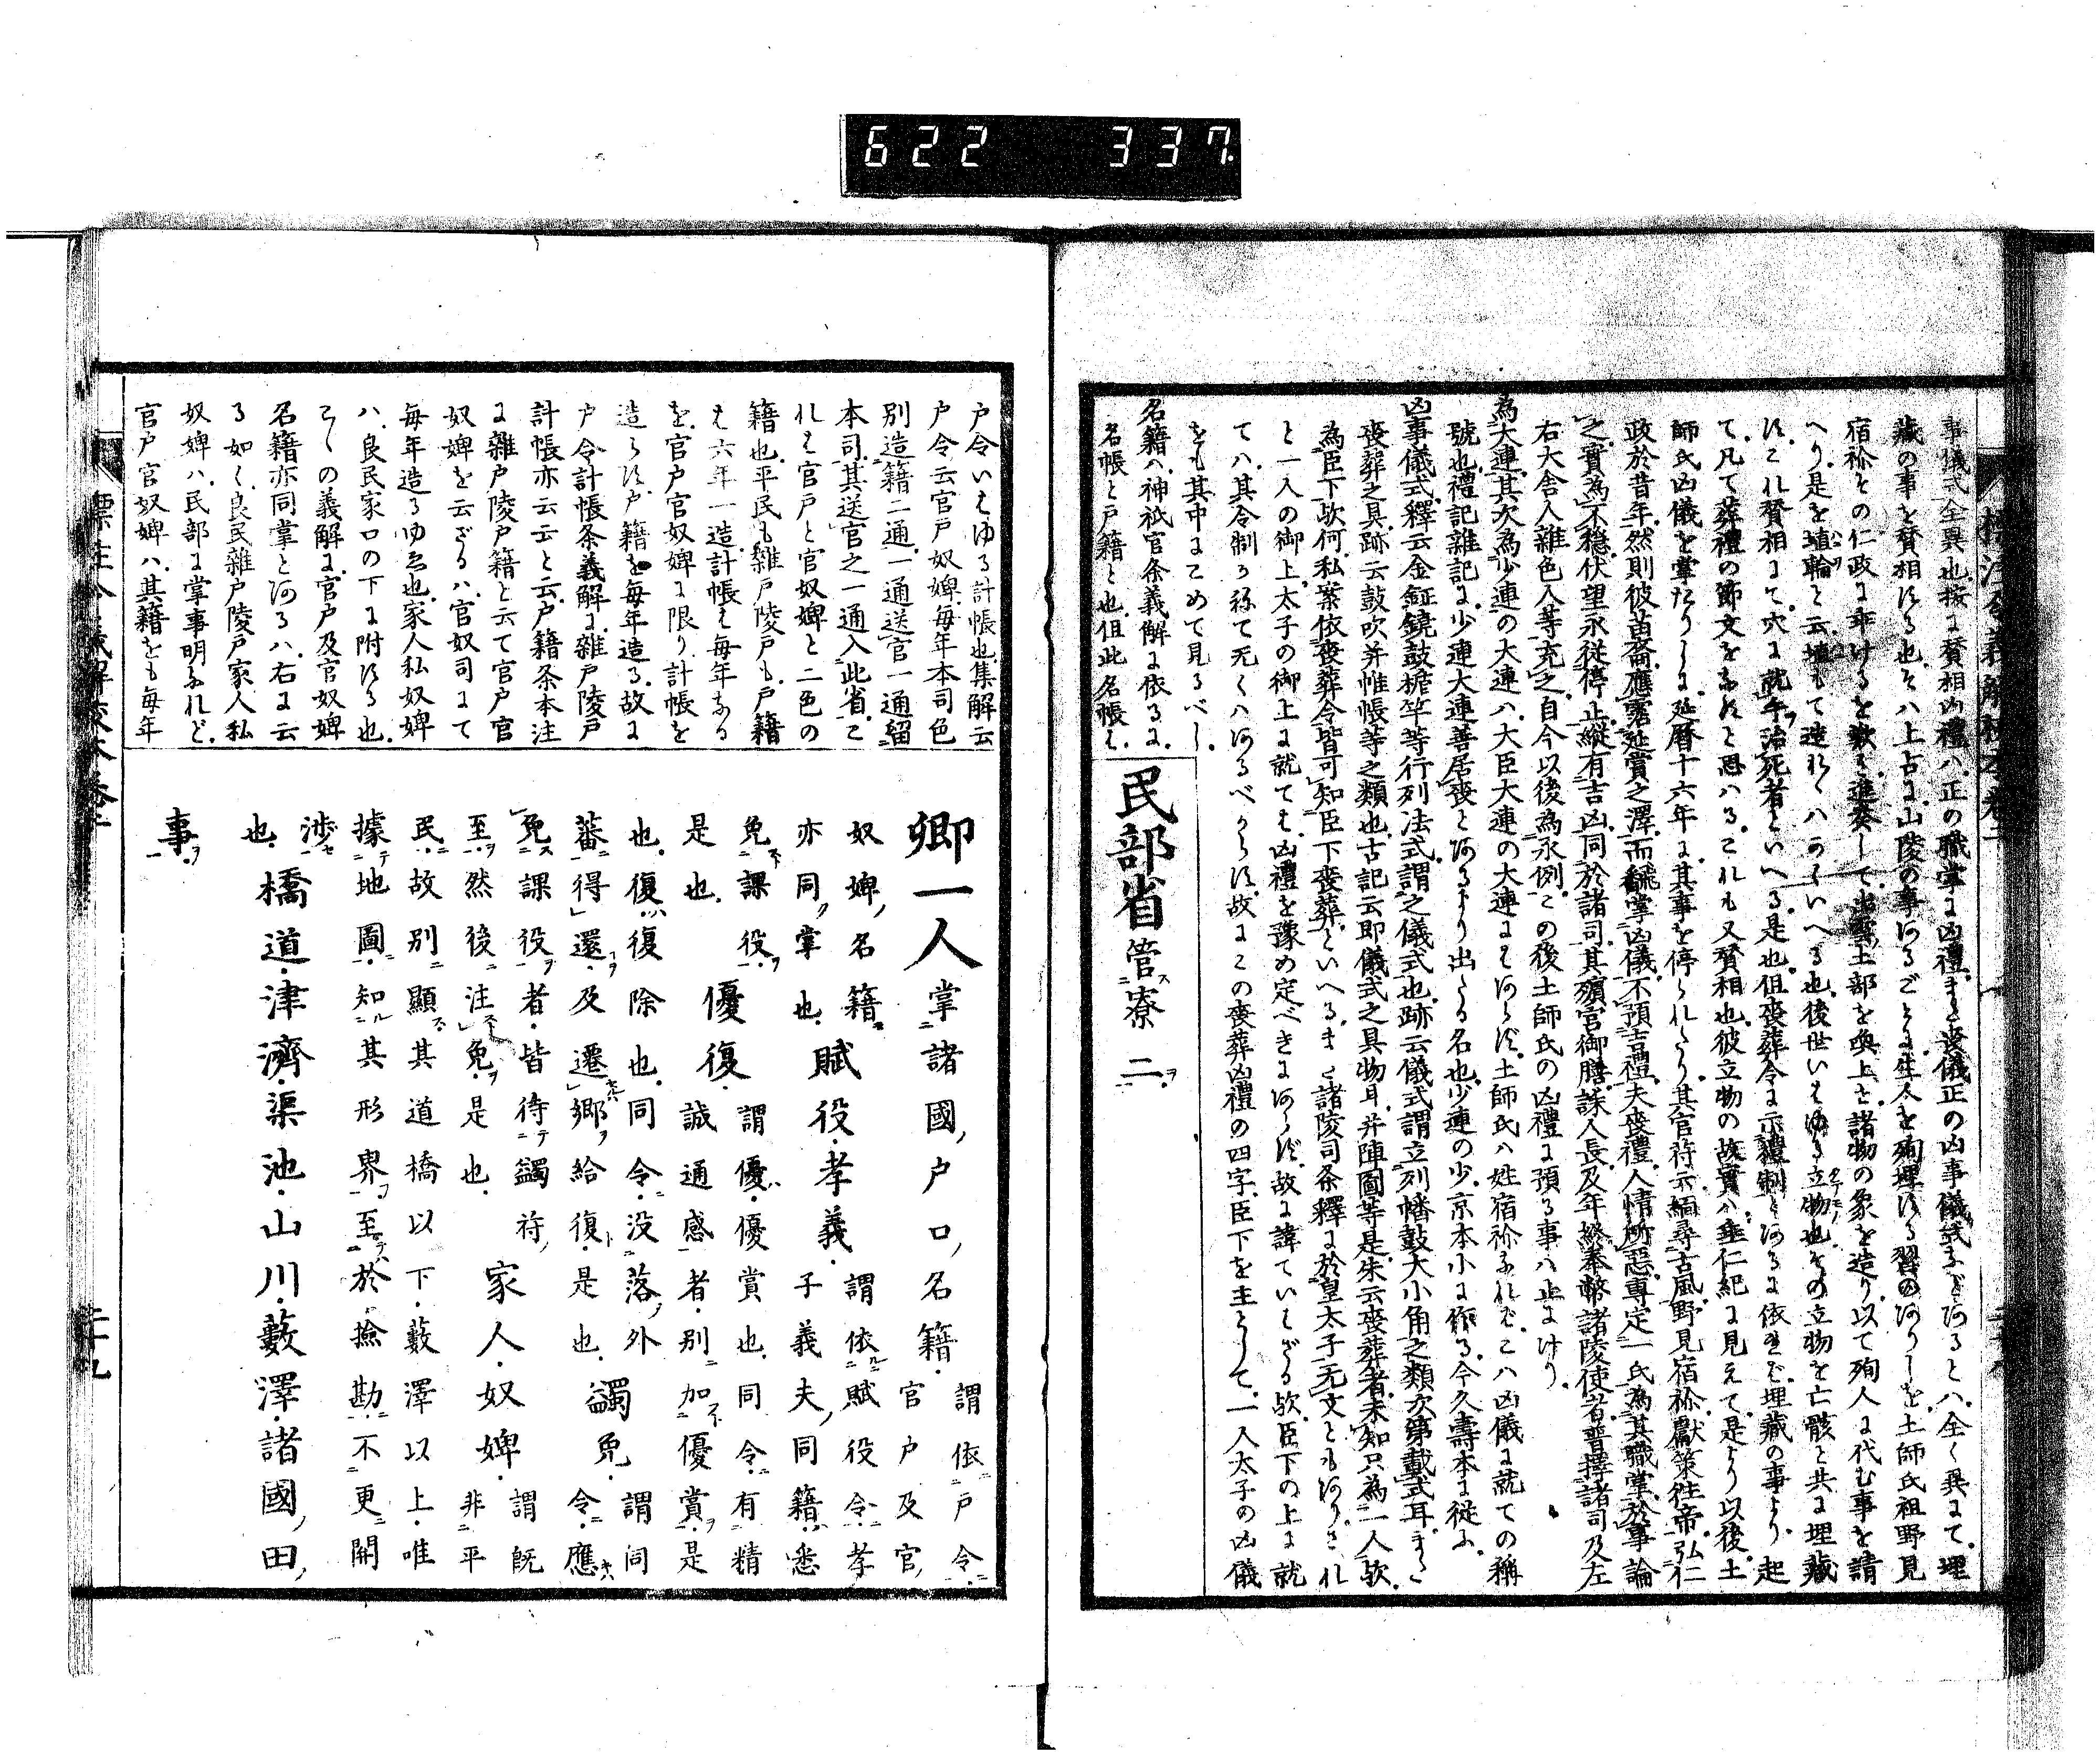 622 337
事儀式全異也按に賛相凶禮ハ正の職掌に凶禮また喪儀正の凶事儀式などあるとハ全く異にて埋
藏の事を賛相する也そハ上古に山陵の事あるごとに生人を殉埋する習のありしを土師氏祖野見
宿祢その仁政に乖けるを歎き進奏して出雲土部を喚上せ諸物の象を造り以て殉人に代む事を請
へり是を埴輪と云埴もて造れハかくいへる也後世いはゆる立物也その立物を亡骸と共に埋藏
て凡て葬禮の節文をなすと思ハるこれも又賛相也彼立物の故實ハ垂仁紀に見えて是より以後土
師氏凶儀を掌たりしに延曆十六年に其事を停られたり其官符云緬尋古風野見宿祢獻策往帝弘仁
政於昔年然則彼苗裔應霑延賞之澤而飜掌凶儀不預吉禮夫喪禮人情所惡專定一氏為其職掌於事論
之實為不穩伏望永從停止縱有吉凶同於諸司其殯宮御膳誄人長及年終奉幣諸陵使者普擇諸司及左
右大舍人雜色人等充之自今以後為永例この後土師氏の凶禮に預る事ハ止にけり
為大連其次為少連の大連ハ大臣大連の大連にはあらず土師氏ハ姓宿祢なれどこハ凶儀に就ての稱
號也禮記雜記に少連大連善居喪とあるより出たる名也少連の少京本小に作る今久壽本に從ふ
凶事儀式釋云金鉦鐃鼓楯竿等行列法式謂之儀式也跡云儀式謂立列幡鼓大小角之類次第戴式耳また
喪葬之具跡云鼓吹并帷帳等之類也古記云即儀式之具物耳并陣圖等是朱云喪葬者未知只為一人歟
為臣下歟何私案依喪葬令皆可知臣下喪葬といへるまた諸陵司条釋に於皇太子无文ともありされ
と一人の御上太子の御上に就ては凶禮を豫め定べきにあらず故に諱ていはざる歟臣下の上に就
てハ其令制る衍て无くハあるべからず故にこの喪葬凶禮の四字臣下を主として一人太子の凶儀
をも其中にこめて見るべし
名籍ハ神祇官条義解に依るに
名帳と戸籍と也但此名帳は
民部省管寮二
戸令いはゆる計帳也集解云
戸令云官戸奴婢毎年本司色
別造籍二通一通送官一通留
本司其送官之一通入此省こ
れは官戸と官奴婢と二色の
籍也平民も雜戸陵戸も戸籍
は六年一造計帳は毎年なる
を官戸官奴婢に限り計帳を
造らず戸籍を毎年造る故に
戸令計帳条義解に雜戸陵戸
計帳亦云云と云戸籍条本注
に雜戸陵戸籍と云て官戸官
奴婢を云ざるハ官奴司にて
毎年造るゆゑ也家人私奴婢
ハ良民家口の下に附する也
こゝの義解に官戸及官奴婢
名籍亦同掌とあるハ右に云
る如く良民雜戸陵戸家人私
奴婢ハ民部に掌事明なれど
官戸官奴婢ハ其籍をも毎年
卿一人掌諸國戸口名籍謂依戸令官戸及官
奴婢名籍亦同掌也賦役孝義謂依賦役令孝子義夫同籍悉
免課役是也優復謂優優賞也同令有精誠通感者別加優賞是
也復復除也同令没落外蕃得還及遷鄉給復是也蠲免謂同令應
免課役者皆待蠲符至然後注免是也家人奴婢謂既非平
民故別顯其道橋以下藪澤以上唯
據地圖知其形界至於撿勘不更開
渉也橋道津濟渠池山川藪澤諸國田
事
標注令義解校本卷二
二十九